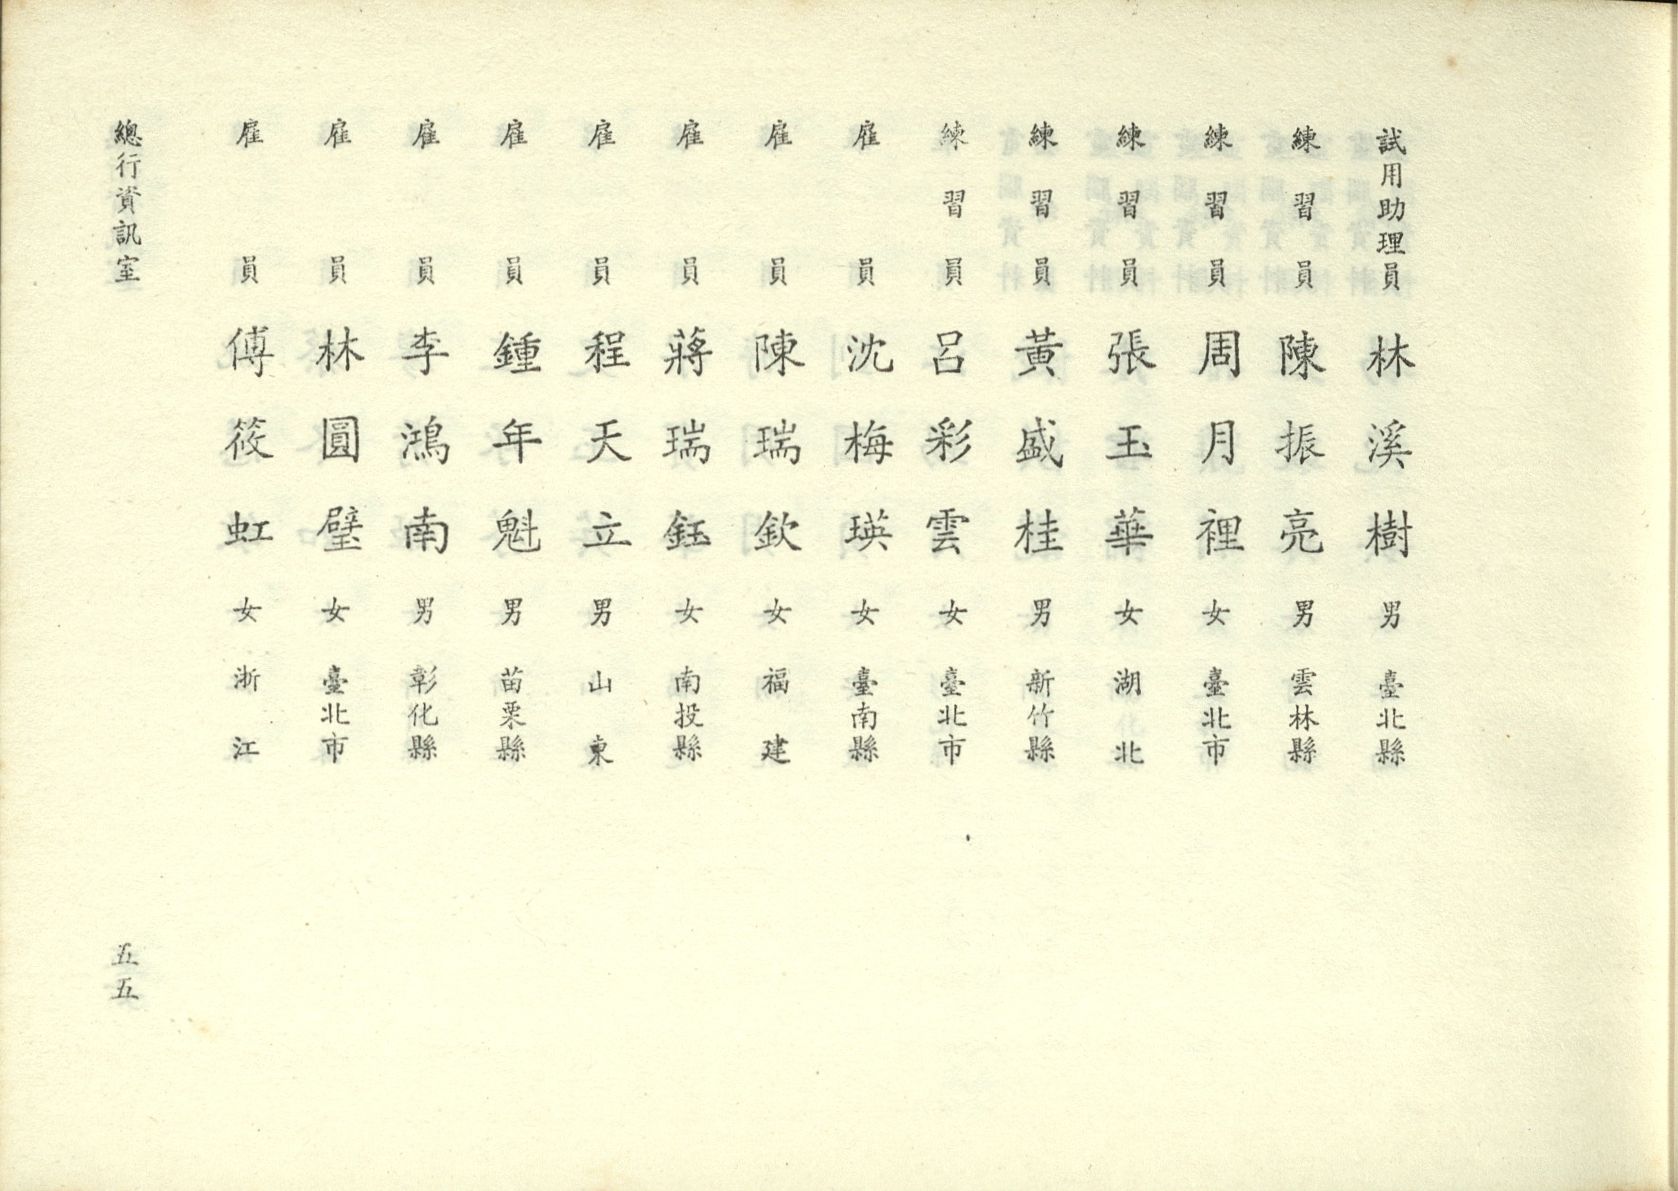 試用助理員 林溪樹 男 臺北縣
練習員 陳振亮 男 雲林縣
練習員 周月裡 女 臺北市
練習員 張玉華 女 湖北
練習員 黃盛桂 男 新竹縣
練習員 呂彩雲 女 臺北市
雇員 沈梅瑛 女 臺南縣
雇員 陳瑞欽 女 福建
雇員 蔣瑞鈺 女 南投縣
雇員 程天立 男 山東
雇員 鍾年魁 男 苗栗縣
雇員 李鴻南 男 彰化縣
雇員 林圓璧 女 臺北市
雇員 傅筱虹 女 浙江
總行資訊室
五五